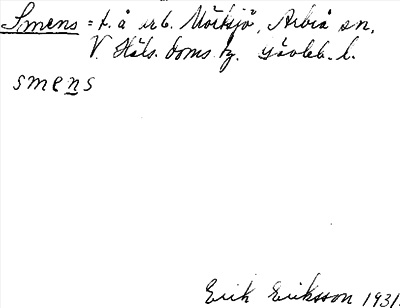 Smens = t. å utb. Mörtsjö, Arbrå sn,
V. Häls. doms.ty. Gävleb. l.
smens
Erik Eriksson 1931.